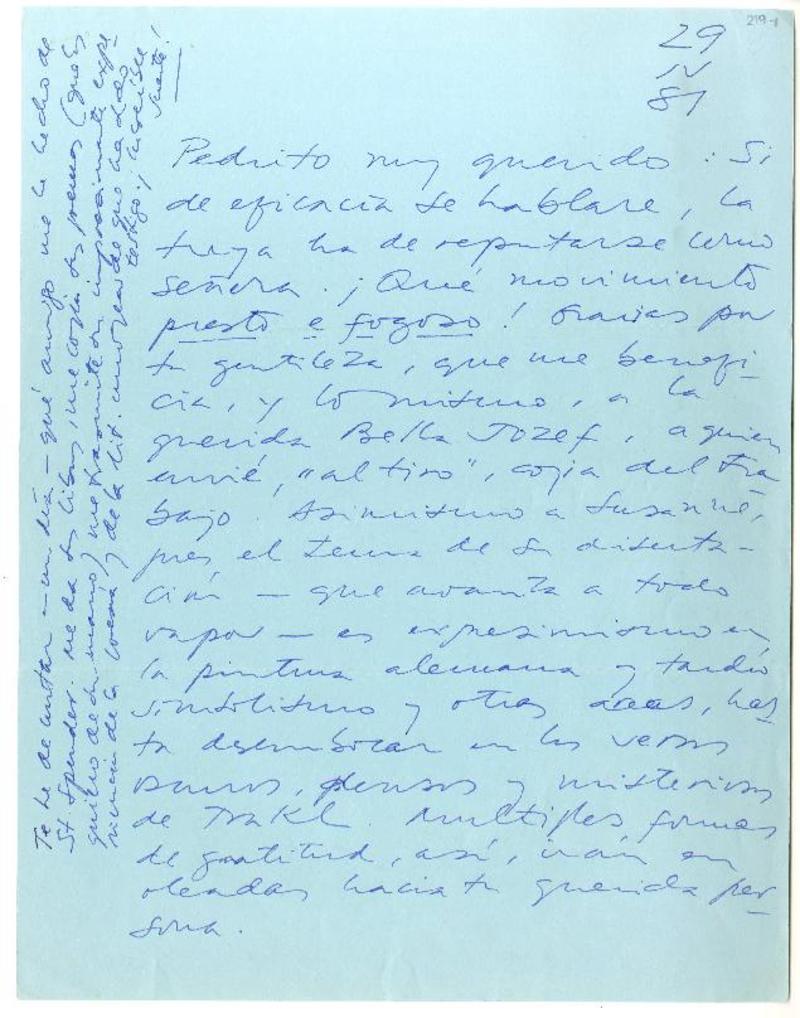 219-1
29
IV
81
Pedrito muy querido: Si
de eficacia se hablare, la
tuya ha de reputarse como
señera. ¡Qué movimiento
presto e fogoso! Gracias por
tu gentileza, que me benefi-
cia, y lo mismo, a la
querida Bella Jozef, a quien
envié, "al tiro", copia del tra
bajo. Asimismo a Susanne,
pues el tema de su diserta-
ción — que avanza a todo
vapor — es expresionismo en
la pintura alemana y tardío
simbolismo y otras áreas, has
ta desembocar en los versos
densos y misteriosos
de Trakl. Multiples formas
de gratitud, así, irán en
oleadas hacia tu querida per
sona.
Te he de contar — un día — qué amigo me he hecho de
St. Spender. Me da sus libros, me copia sus poemas (que los
quiero de su mano) y me trasmite su impresionante expe-
riencia de la poesía y de la lit. europeas de que ha sido
testigo. ¡Increíble
suerte!